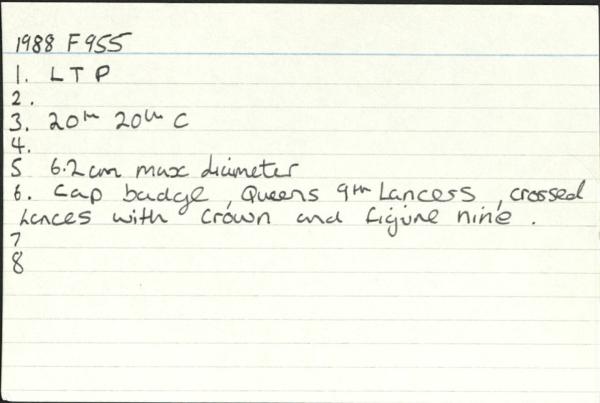 1988 F955
1. LTP
2.
3. 20th 20th C
4.
5 6.2cm max diameter
6. Cap badge, Queens 9th Lancers, crossed
Lances with Crown and figure nine.
7
8